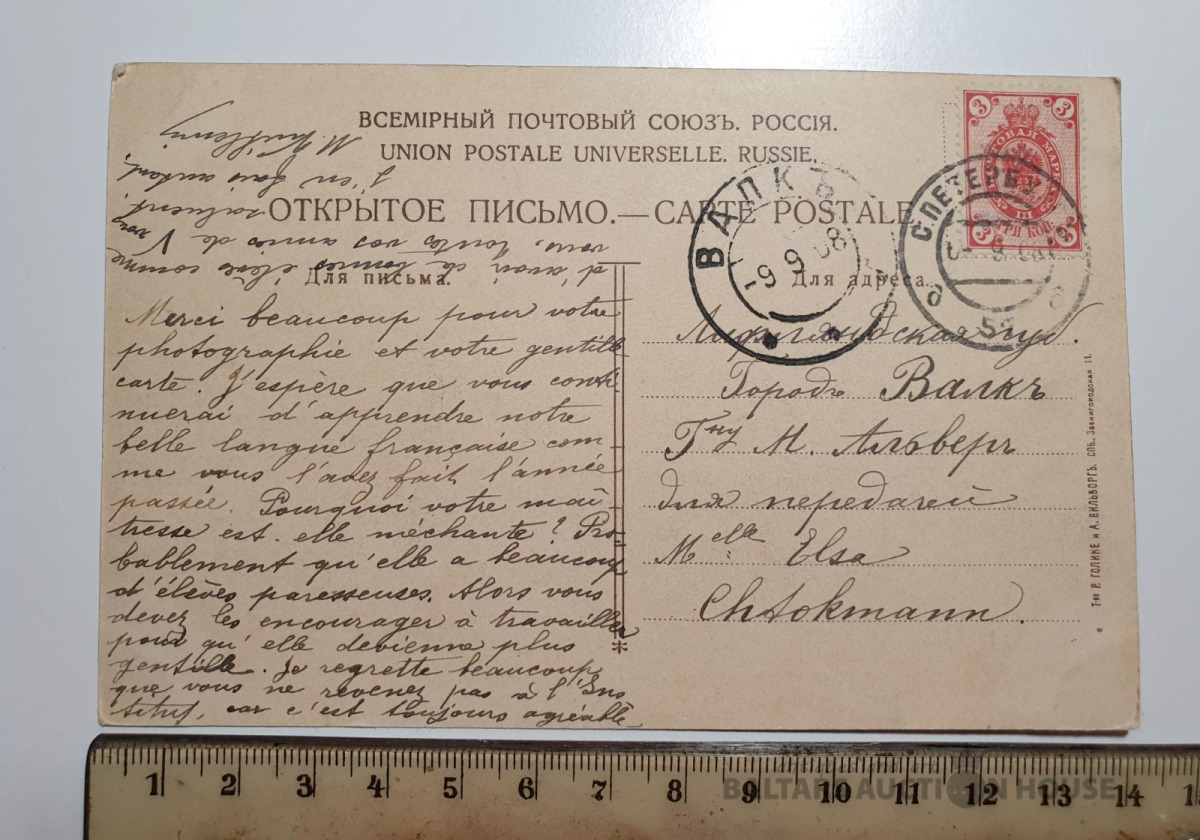 ВСЕМІРНЫЙ ПОЧТОВЫЙ СОЮЗЪ. РОССІЯ.
UNION POSTALE UNIVERSELLE. RUSSIE.
ОТКРЫТОЕ ПИСЬМО.—CARTE POSTALE
Для письма.
Для адреса.
Merci beaucoup pour votre
photographie et votre gentille
carte. J'espère que vous conti-
nuerai d'apprendre notre
belle langue française com-
me vous l'avez fait l'année
passée. Pourquoi votre maî-
tresse est-elle méchante? Pro-
bablement qu'elle a beaucoup
d'élèves paresseuses. Alors vous
devez les encourager à travailler
pour qu'elle devienne plus
gentille. Je regrette beaucoup
que vous ne revenez pas à l'Ins
titut, car c'est toujours agréable
d'avoir de bonnes élèves comme
vous. Toutes vos amies de V vous
saluent.
J'en fais autant.
M.
губ.
Городъ Валкъ
Гну М. Альверъ
для передачей
Melle Elsa
Chtokmann.
3
3
3
3
ПОЧТОВАЯ МАРКА
ТРИ КОП.
ВАЛКЪ
-9 9 08
С.ПЕТЕРБУ
51
Т-во Р. ГОЛИКЕ и А. ВИЛЬБОРГЪ. СПБ. Звенигородская 11.
1 2 3 4 5 6 7 8 9 10 11 12 13 14
BALTARS AUCTION HOUSE